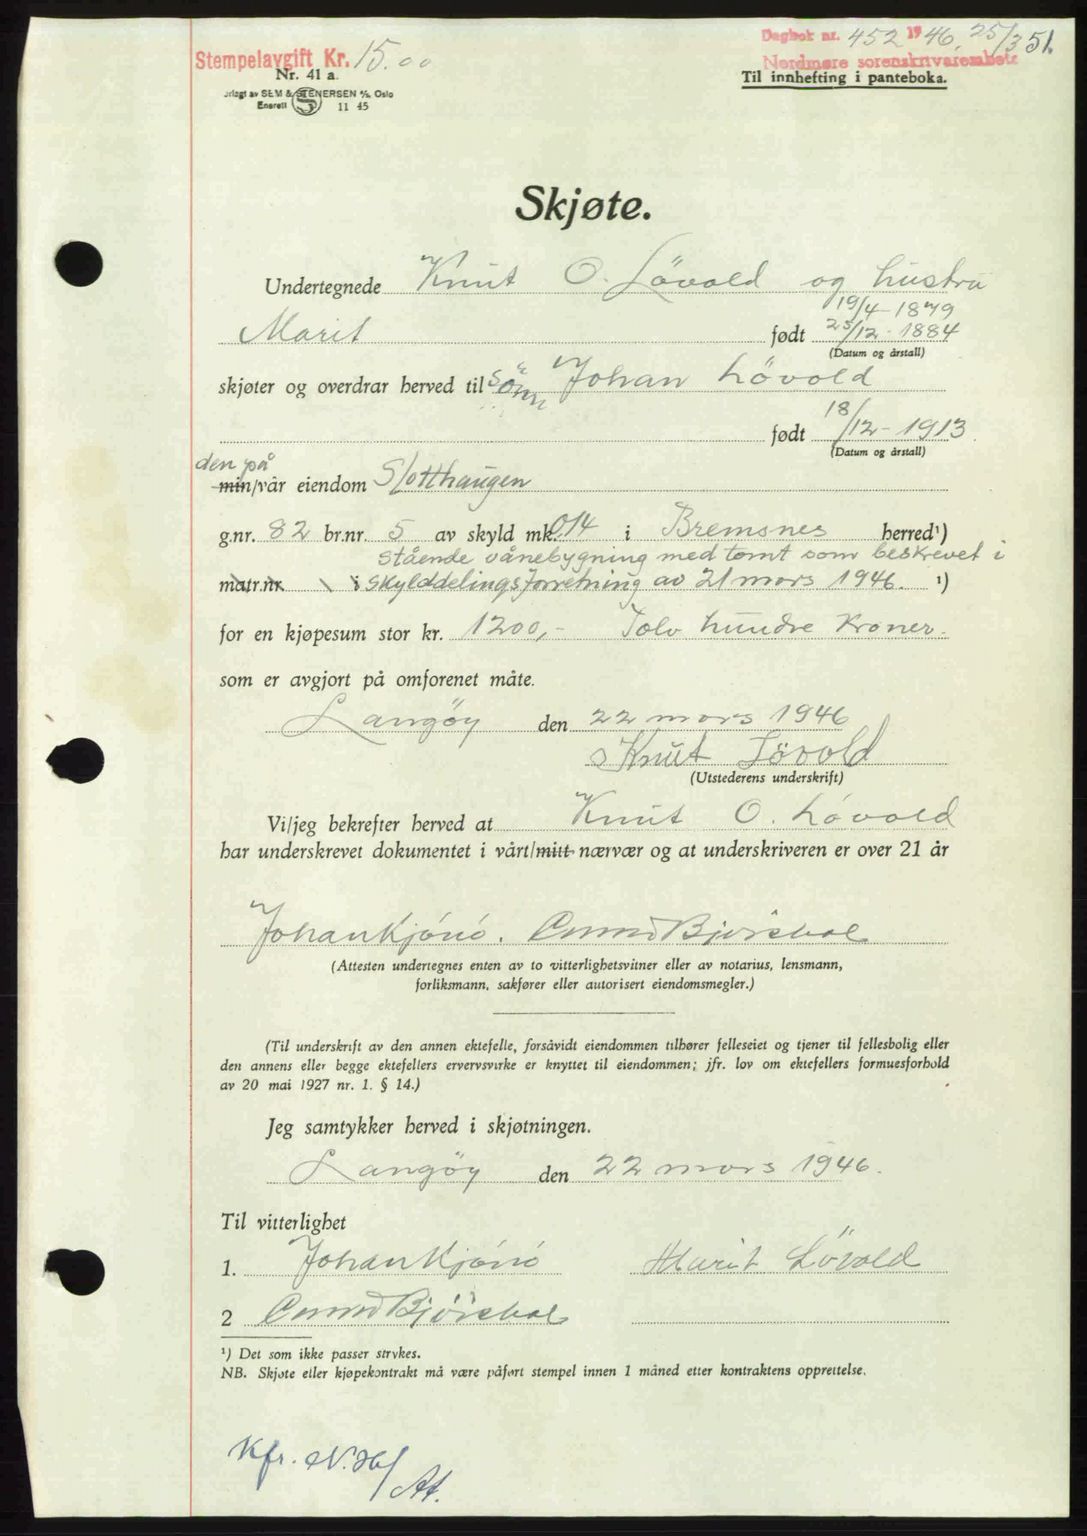 Stempelavgift Kr. 15.00
Dagbok nr. 452 1946, 25/3 51.
Nordmøre sorenskriverembete
Nr. 41 a.
Til innhefting i panteboka.
orlagt av SEM & STENERSEN A/s, Oslo
Enerett S 11 45
Skjøte.
Undertegnede Knut O. Lövold og hustru
19/4-1879
Marit født 25/12-1884
(Datum og årstall)
skjøter og overdrar herved til sönn Johan Lövold
født 18/12-1913
(Datum og årstall)
den på
min/vår eiendom Slotthaugen
g.nr. 82 br.nr. 5 av skyld mk. 014 i Bremsnes herred¹)
stående vånebygning med tomt som beskrevet i
matr.nr. i skylddelingsforretning av 21 mars 1946. ¹)
for en kjøpesum stor kr. 1200,- Tolv hundre Kroner.
som er avgjort på omforenet måte.
Langöy den 22 mars 1946
Knut Lövold
(Utstederens underskrift)
Vi/jeg bekrefter herved at Knut O. Lövold
har underskrevet dokumentet i vårt/mitt nærvær og at underskriveren er over 21 år
Johan Kjönö.
(Attesten undertegnes enten av to vitterlighetsvitner eller av notarius, lensmann,
forliksmann, sakfører eller autorisert eiendomsmegler.)
(Til underskrift av den annen ektefelle, forsåvidt eiendommen tilhører felleseiet og tjener til fellesbolig eller
den annens eller begge ektefellers ervervsvirke er knyttet til eiendommen; jfr. lov om ektefellers formuesforhold
av 20 mai 1927 nr. 1. § 14.)
Jeg samtykker herved i skjøtningen.
Langöy den 22 mars 1946.
Til vitterlighet
1. Johan Kjönö Marit Lövold
2
¹) Det som ikke passer strykes.
NB. Skjøte eller kjøpekontrakt må være påført stempel innen 1 måned etter kontraktens opprettelse.
Kfr.